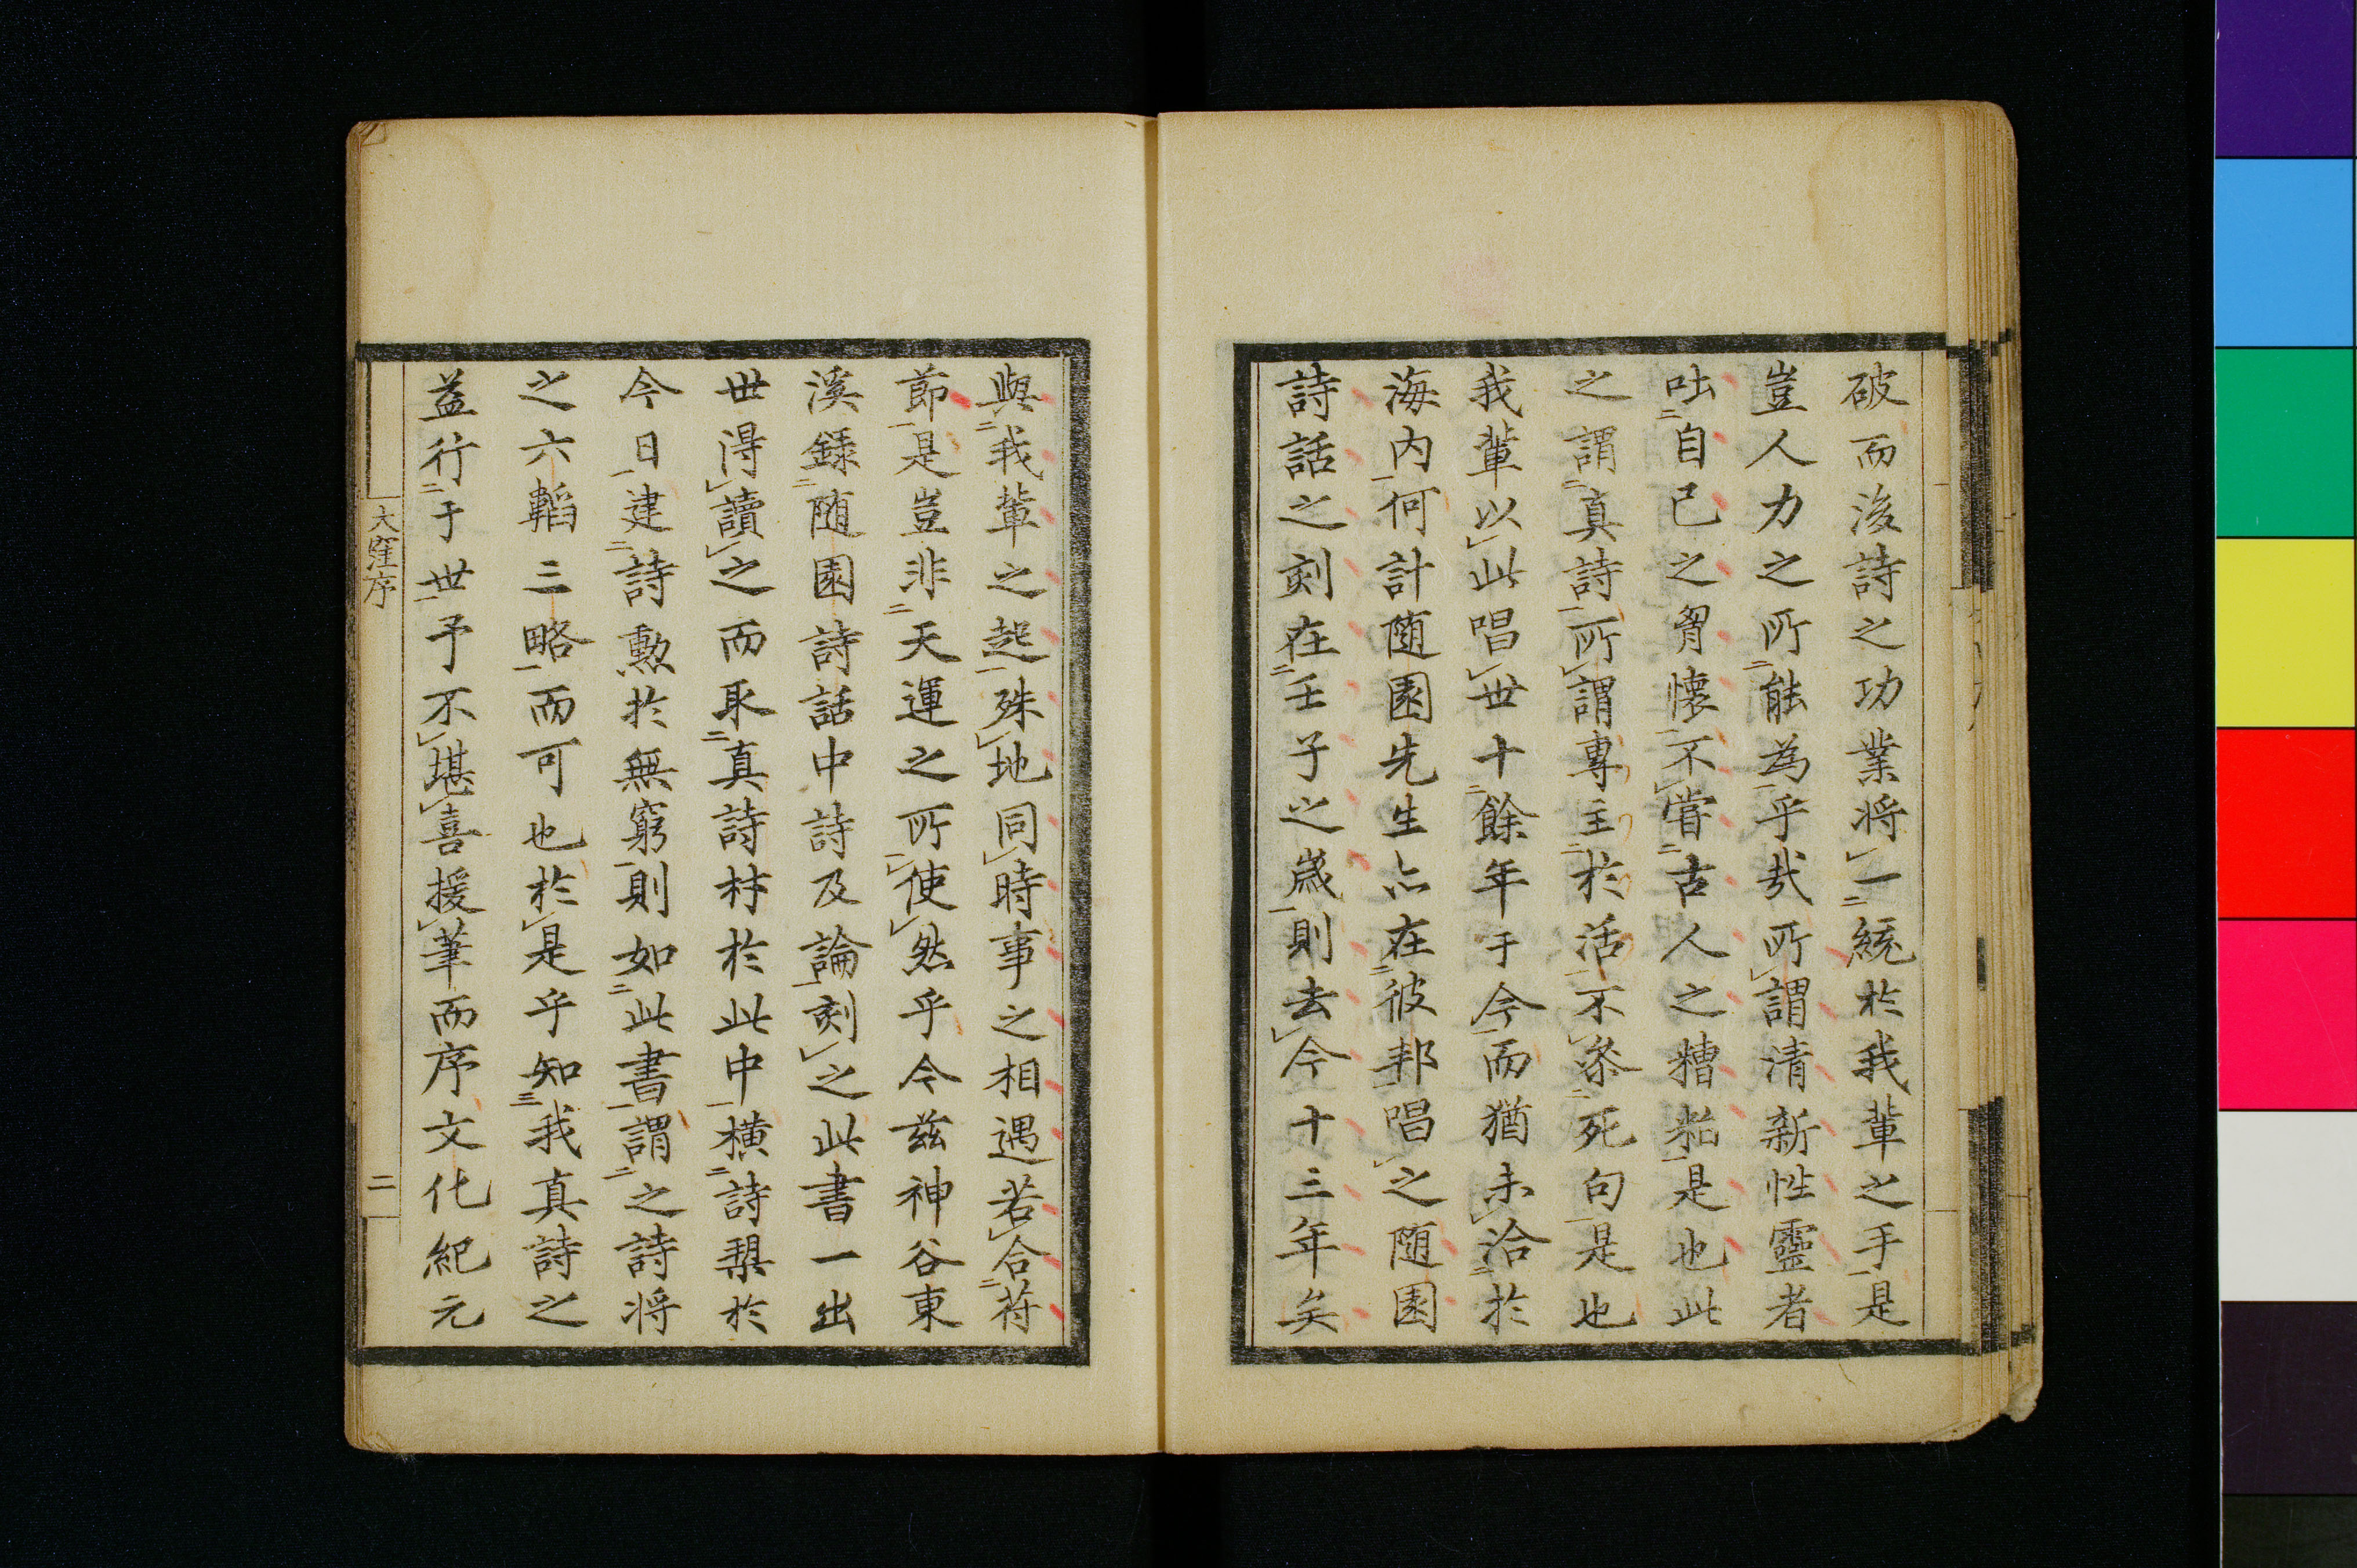 破而後詩之功業将一統於我輩之手是
豈人力之所能為乎哉所謂清新性靈者
吐自己之胷懐不嘗古人之糟粕是也此
之謂真詩所謂専主於活不条死句是也
我輩以此唱世十餘年于今而猶未洽於
海内何計随園先生亦在彼邦唱之随園
詩話之刻在壬子之歳則去今十三年矣
與我輩之起殊地同時事之相遇若合符
節是豈非天運之所使然乎今茲神谷東
溪録随園詩話中詩及論刻之此書一出
世得讀之而取真詩材於此中横詩槊於
今日建詩勲於無窮則如此書謂之詩将
之六韜三略而可也於是乎知我真詩之
益行于世予不堪喜援筆而序文化紀元
大窪序
二